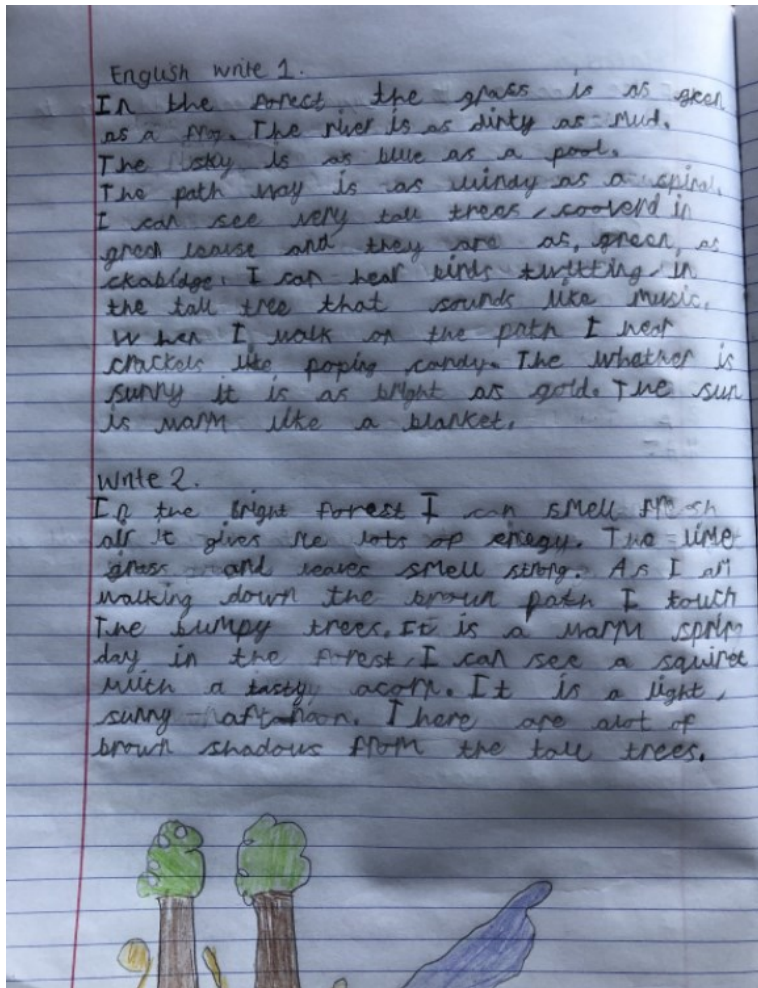 English write 1.
In the forest the grass is as green
as a frog. The river is as dirty as mud.
The sky is as blue as a pool.
The path way is as windy as a spiral.
I can see very tall trees, cooverd in
green leause and they are as, green, as
ckabidge. I can hear birds twitting in
the tall tree that sounds like music.
When I walk on the path I hear
crackels like poping candy. The whather is
sunny it is as bright as gold. The sun
is warm like a blanket.
Write 2.
In the bright forest I can smell fresh
air it gives me lots of energy. The lime
grass and leaves smell strong. As I am
walking down the brown path I touch
the bumpy trees. It is a warm spring
day in the forest. I can see a squirel
munch a tasty acorn. It is a light,
sunny aftanoon. There are alot of
brown shadows from the tall trees.